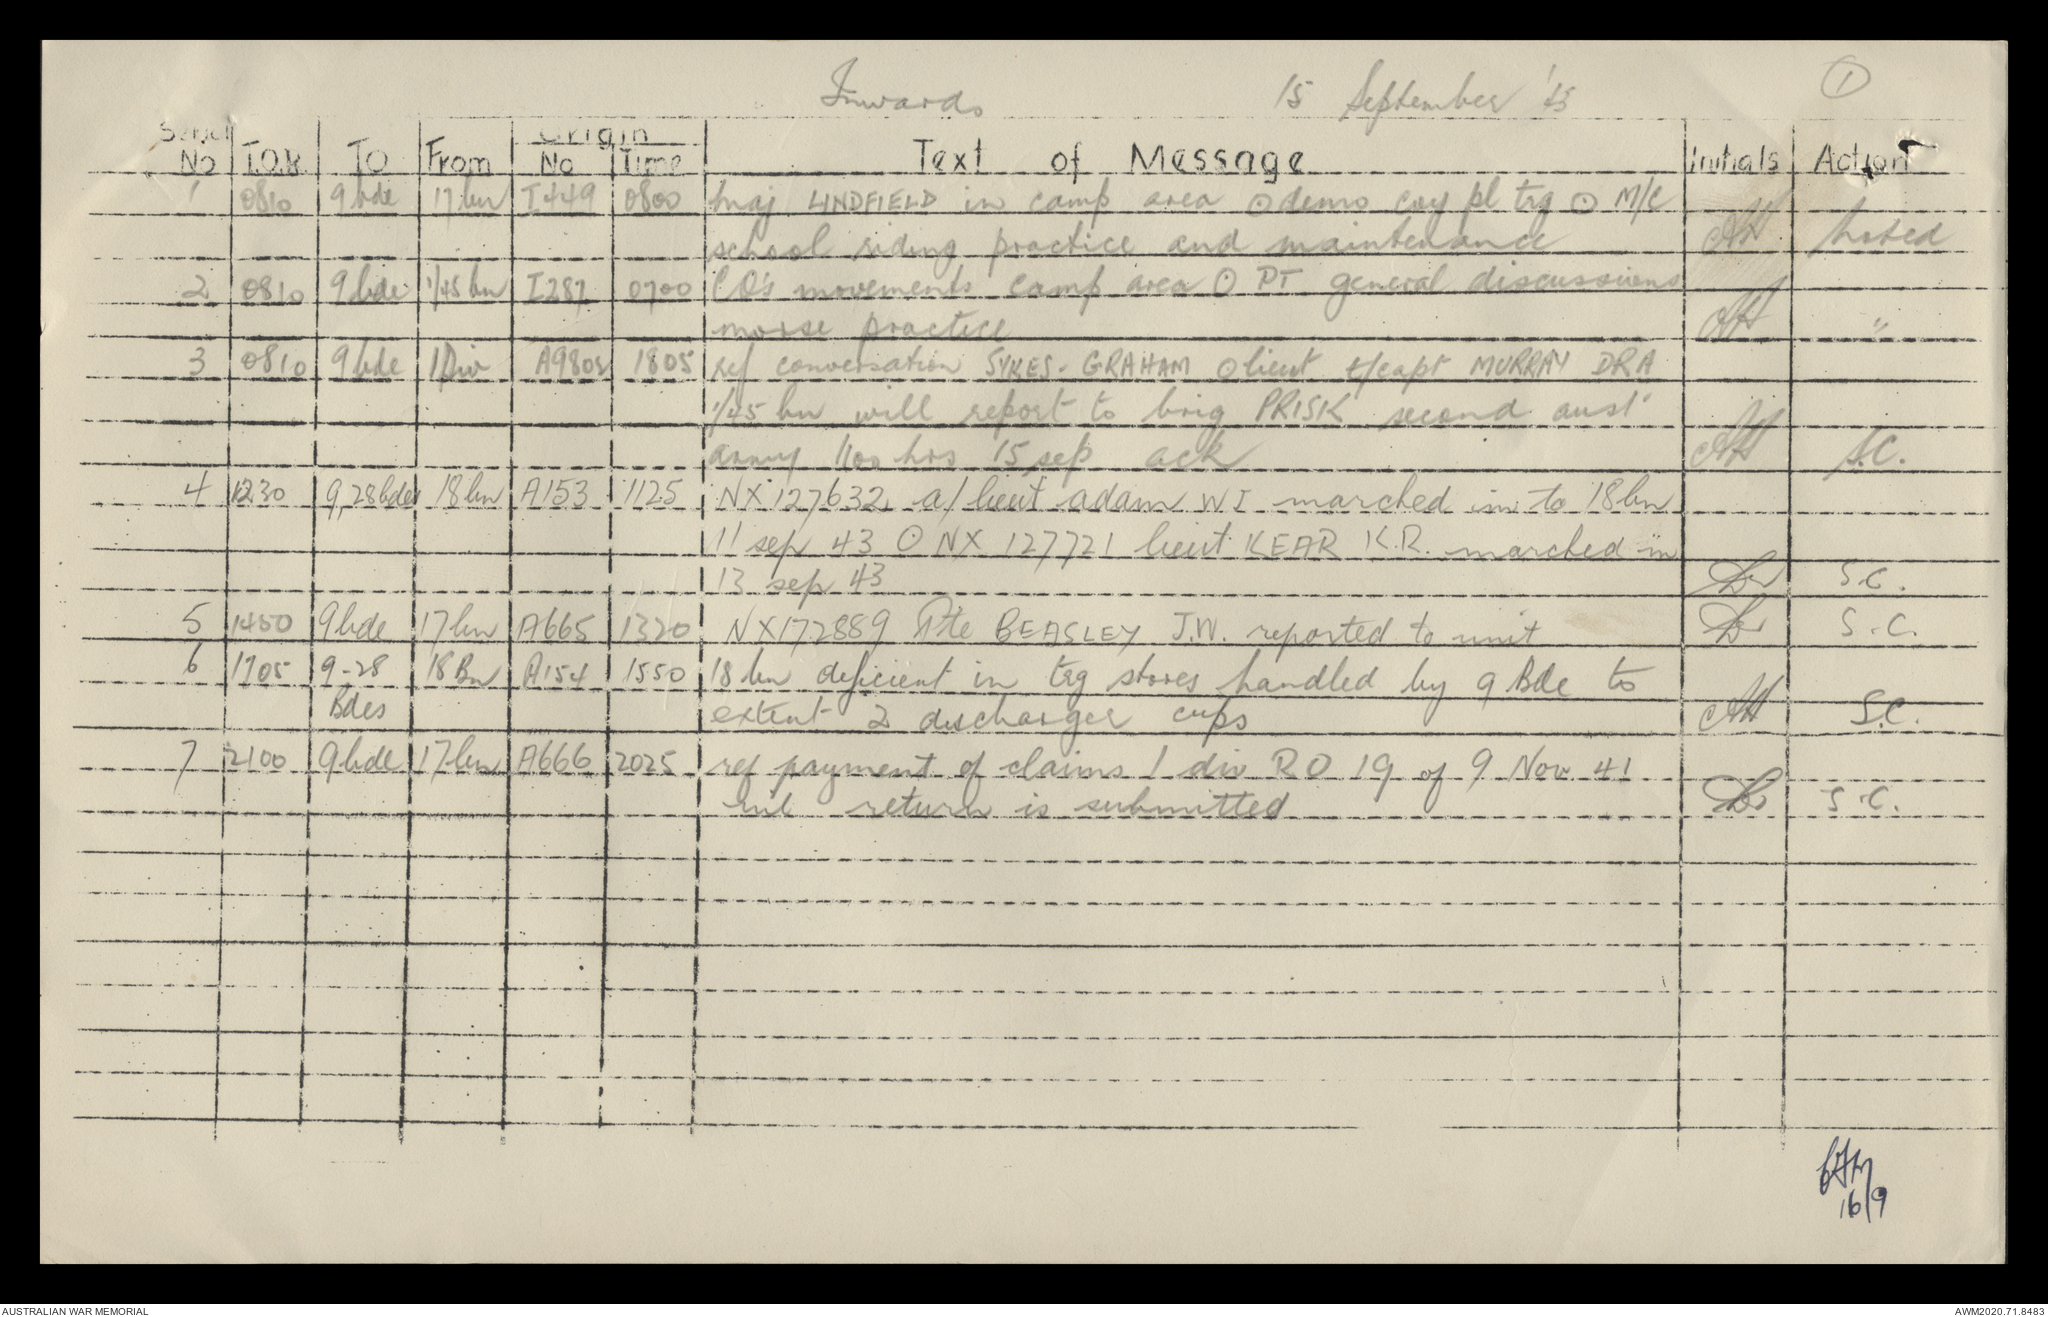 Inwards 15 September '43 1
Serial Origin
No T.O.R. TO From No Time Text of Message Initials Action
1 0810 9 bde 17 bn I449 0800 maj LINDFIELD in camp area ⊙ demo coy pl trg ⊙ M/C
school riding practice and maintenance noted
2 0810 9 bde 1/45 bn I287 0700 CO's movements camp area ⊙ PT general discussions
morse practice "
3 0810 9 bde 1 Div 1805 ref conversation SYKES-GRAHAM ⊙ lieut t/capt MURRAY DRA
1/45 bn will report to brig PRISK second aust
army 1100 hrs 15 sep ack S.C.
4 1230 9, 28 bdes 18 bn A153 1125 NX 127632 a/lieut adam WJ marched in to 18 bn
11 sep 43 ⊙ NX 127721 lieut KEAR K.R. marched in
13 sep 43 S.C.
5 1450 9 bde 17 bn A665 1320 NX172889 Pte BEASLEY J.W. reported to unit S.C.
6 1705 9-28 18 Bn A154 1550 18 bn deficient in trg stores handled by 9 Bde to
Bdes extent 2 discharger cups S.C.
7 2100 9 bde 17 bn A666 2025 ref payment of claims 1 div RO 19 of 9 Nov 41
nil return is submitted S.C.
16/9
AUSTRALIAN WAR MEMORIAL AWM2020.71.8483